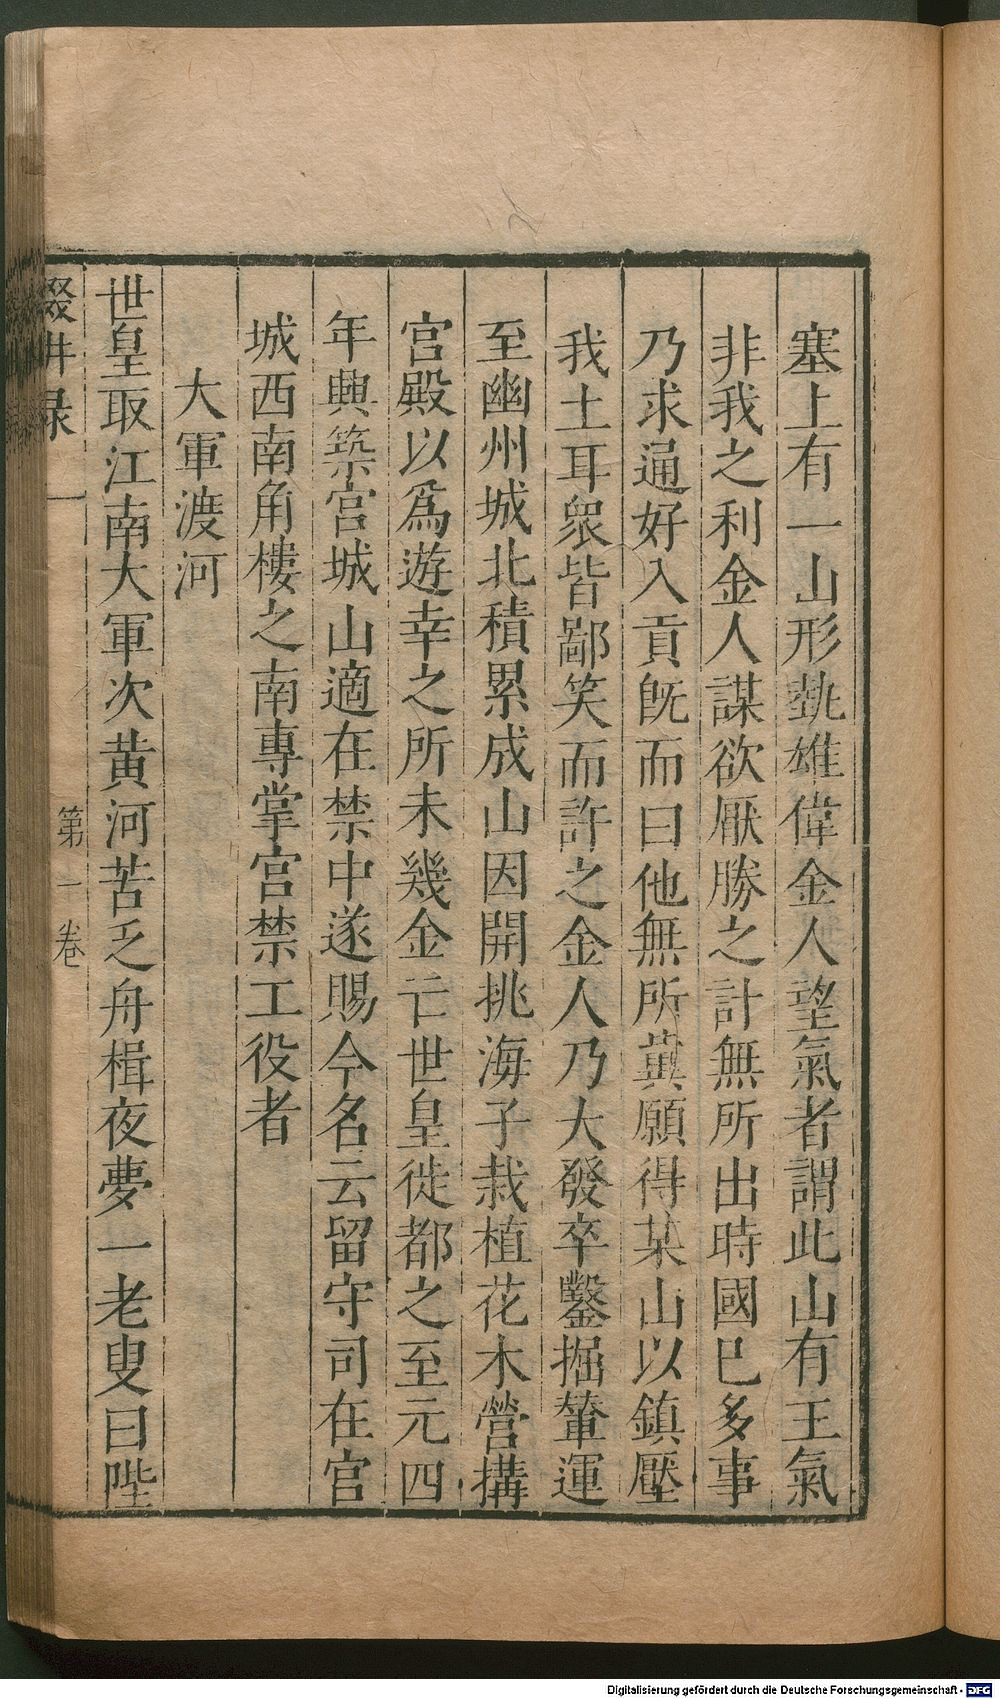 塞上有一山形埶雄偉金人望氣者謂此山有王氣
非我之利金人謀欲厭勝之計無所出時國已多事
乃求通好入貢旣而曰他無所冀願得某山以鎮壓
我土耳衆皆鄙笑而許之金人乃大發卒鑿掘輦運
至幽州城北積累成山因開挑海子栽植花木營搆
宮殿以爲遊幸之所未幾金亡世皇徙都之至元四
年興築宮城山適在禁中遂賜今名云留守司在宮
城西南角樓之南專掌宮禁工役者
大軍渡河
世皇取江南大軍次黃河苦乏舟楫夜夢一老叟曰陛
輟耕录 一
第一卷
Digitalisierung gefördert durch die Deutsche Forschungsgemeinschaft - DFG